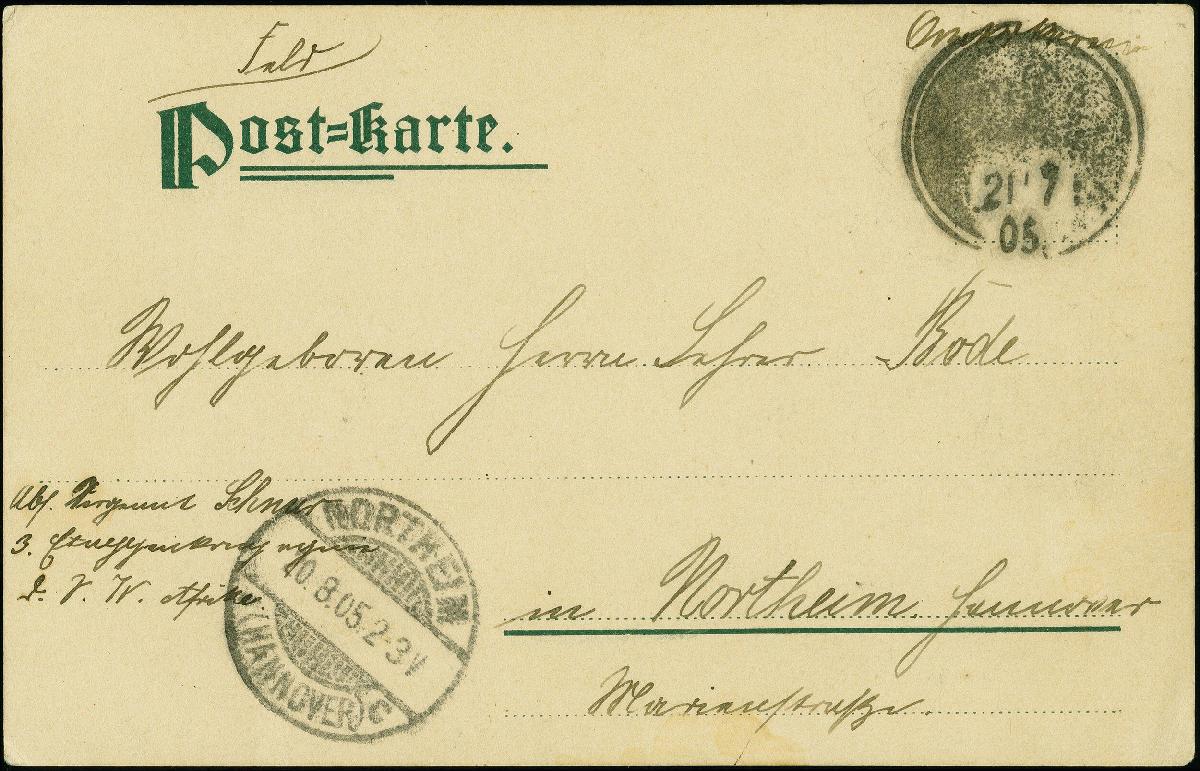 Feld
Post=Karte.
21 7
05
Wohlgeboren Herrn Lehrer Bode
Abs. Sergeant
3.
D. S. W. Afrika
NORTHEIM
10.8.05.2-3V
(HANNOVER) c
in Northeim. Hannover
Marienstraße.